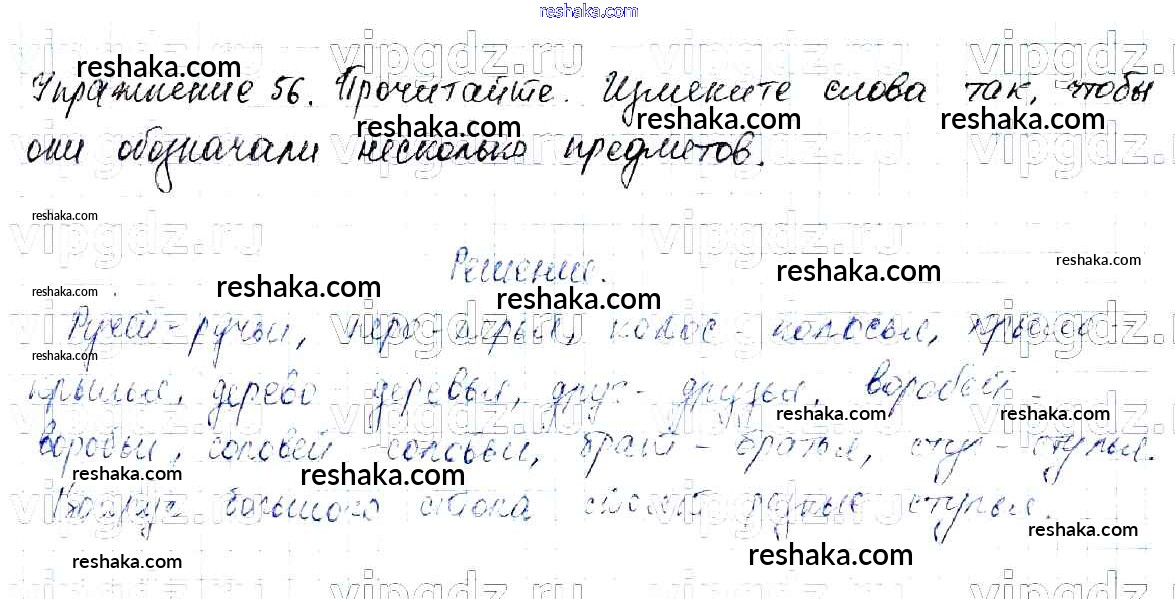 reshaka.com
Упражнение 56. Прочитайте. Измените слова так, чтобы
они обозначали несколько предметов.
Решение.
Ручей - ручьи, перо - перья, колос - колосья, крыло -
крылья, дерево - деревья, друг - друзья, воробей -
воробьи, соловей - соловьи, брат - братья, стул - стулья.
Вокруг большого стола стоят резные стулья.